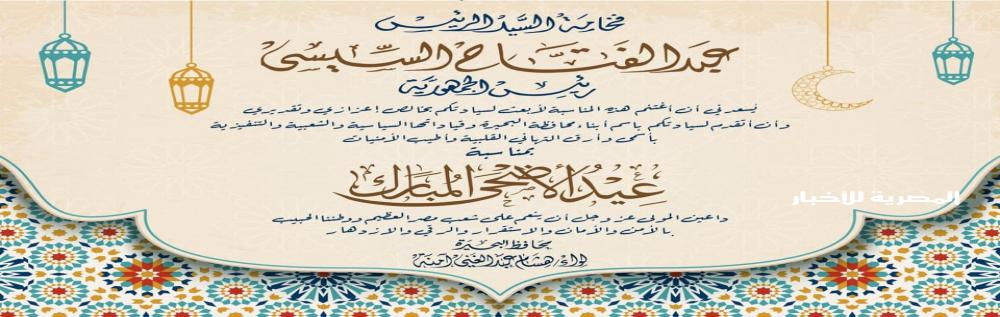 فخامة السيد الرئيس
عبد الفتاح السيسى
رئيس الجمهورية
يسعدني أن أغتنم هذه المناسبة لأبعث لسيادتكم بخالص إعزازي وتقديري
وأن أتقدم لسيادتكم باسم أبناء محافظة البحيرة وقياداتها السياسية والشعبية والتنفيذية
بأسمى وأرق التهاني القلبية وأطيب الأمنيات
بمناسبة
عيد الأضحى المبارك
داعين المولى عز وجل أن ينعم على شعب مصر العظيم ووطننا الحبيب
بالأمن والأمان والاستقرار والرقي والازدهار
محافظ البحيرة
لواء/ هشام عبد الغنى آمنة
المصرية للأخبار